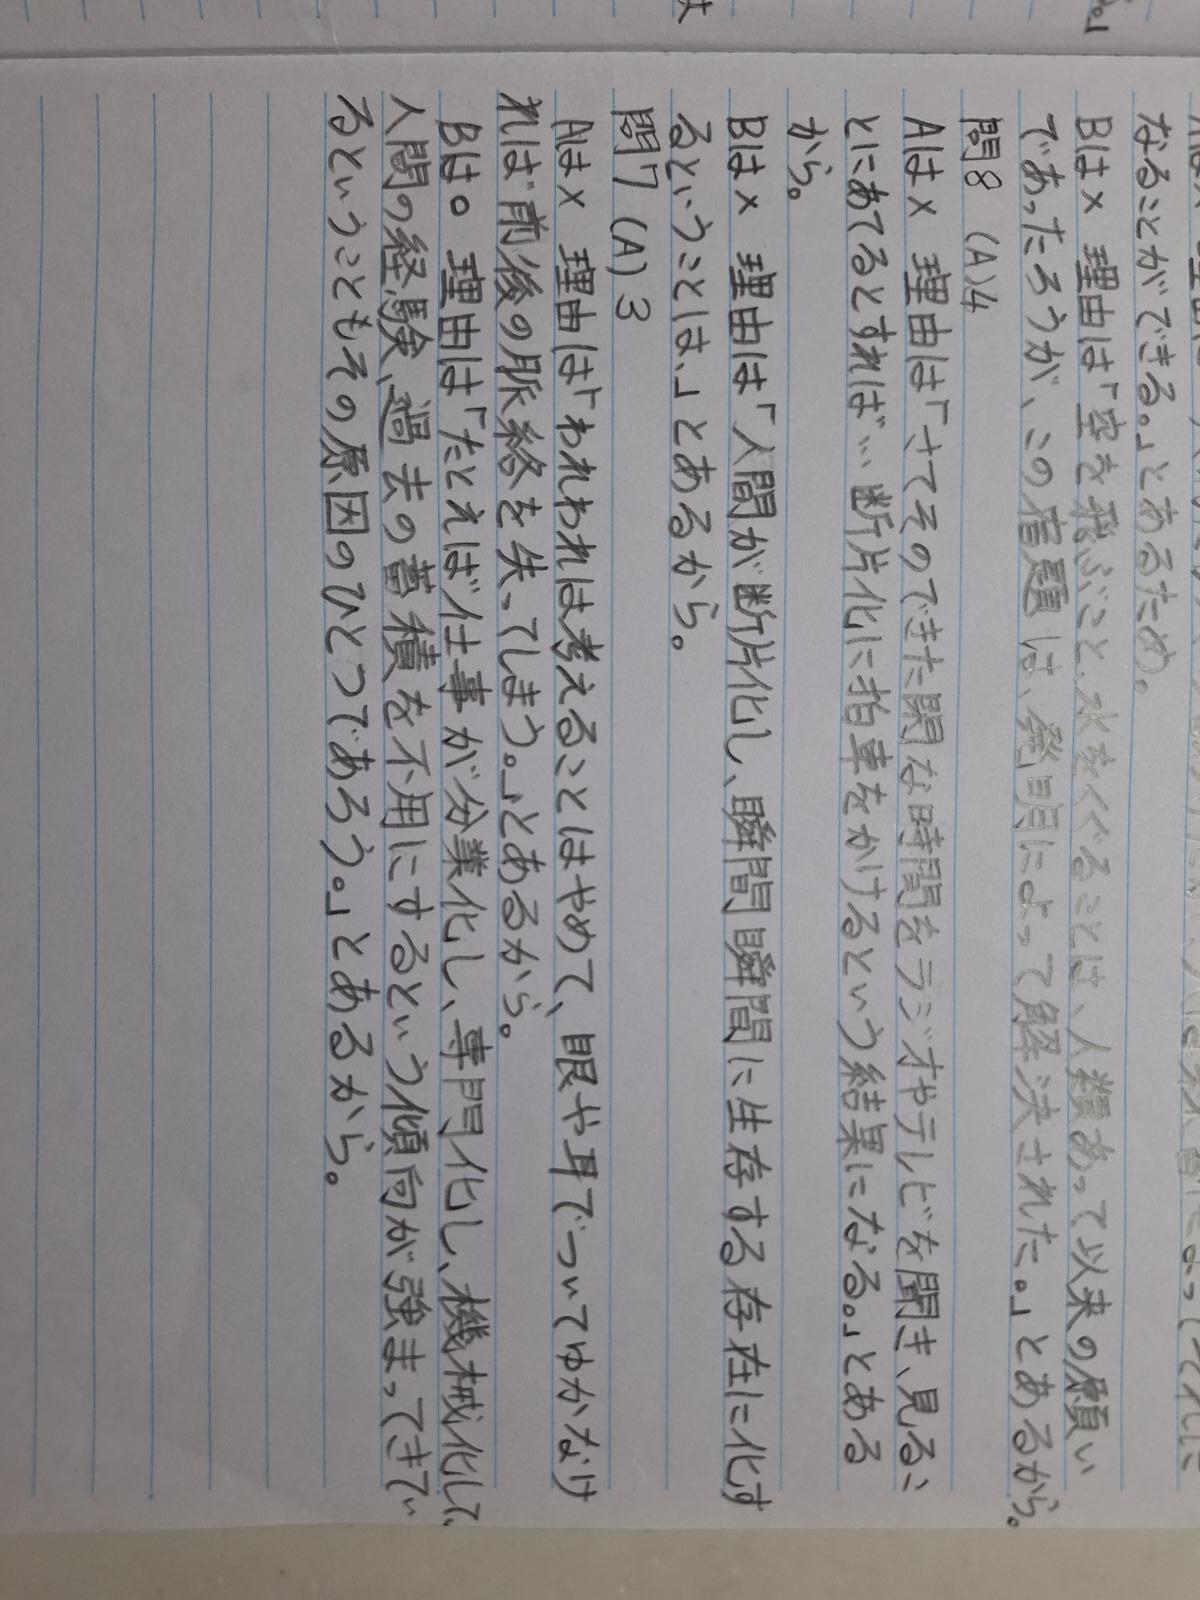 なることができる。」とあるため。
Bは× 理由は「空を飛ぶこと、水をくぐることは、人類あって以来の願い
であったろうが、この宿題は、発明によって解決された。」とあるから。
問8 (A)4
Aは× 理由は「さてそのできた閑な時間をラジオやテレビを聞き、見るこ
とにあてるとすれば…断片化に拍車をかけるという結果になる。」とある
から。
Bは× 理由は「人間が断片化し、瞬間瞬間に生存する存在に化す
るということは、」とあるから。
問7 (A)3
Aは× 理由は「われわれは考えることはやめて、眼や耳でついてゆかなけ
れば前後の脈絡を失ってしまう。」とあるから。
Bは○ 理由は「たとえば仕事が分業化し、専門化し、機械化して、
人間の経験、過去の蓄積を不用にするという傾向が強まってきてい
るということもその原因のひとつであろう。」とあるから。